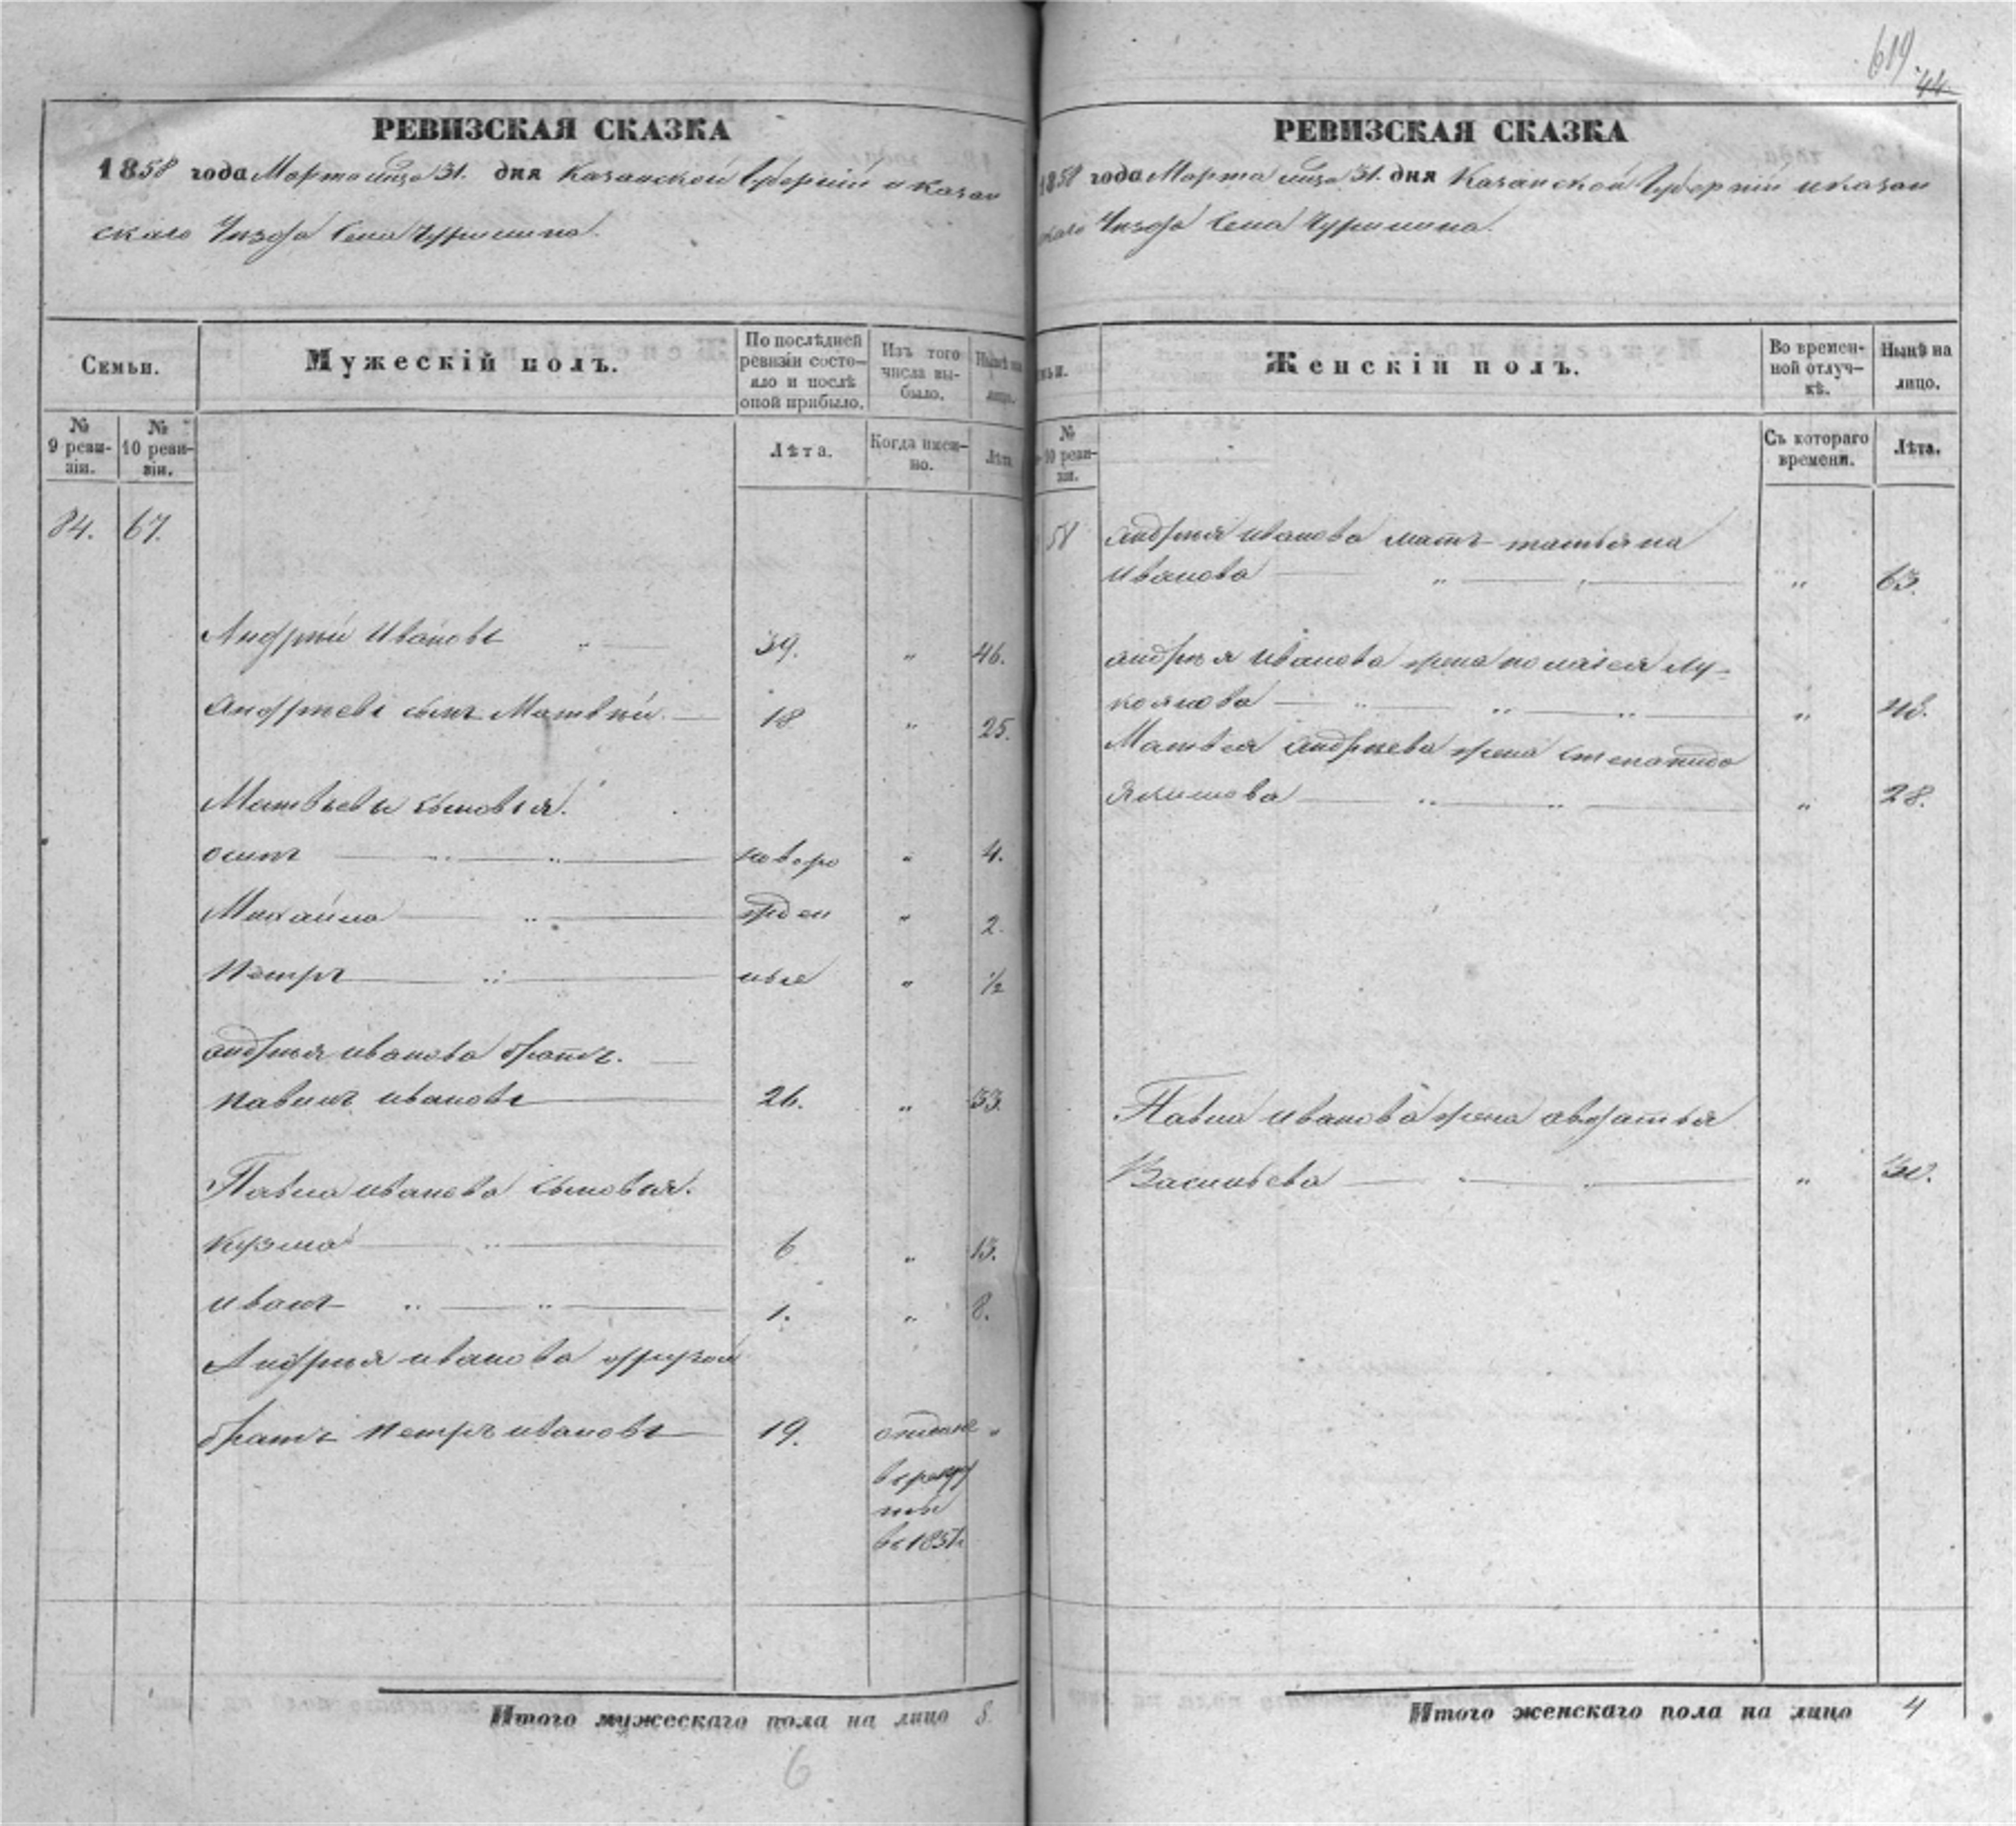 619.
44
РЕВИЗСКАЯ СКАЗКА
1858 года Марта 31. дня Казанской Губерніи и казан
скаго Уезда Села
Семьи.
Мужескій полъ.
По послѣдней ревизіи состояло и послѣ оной прибыло.
Изъ того числа выбыло.
Нынѣ на лицо.
№ 9 ревизіи.
№ 10 ревизіи.
Лѣта.
Когда именно.
Лѣта
84. 67.
Андрей Ивановъ 39. „ 46.
Андреевъ сынъ Матвѣй 18 „ 25.
Матвѣевы сыновья.
осипъ новоро „ 4.
Михайла жден „ 2.
Петръ ные „ ½
андрея иванова братъ.
павилъ ивановъ 26. „ 33.
Павла иванова сыновья.
Кузма 6 „ 13.
иванъ 1. „ 8.
Андрея иванова другой
братъ петръ ивановъ 19. отданъ „
в рекру
ты
въ 185
Итого мужескаго пола на лицо 8.
6
РЕВИЗСКАЯ СКАЗКА
1858 года Марта 31. дня Казанской Губерніи и казан
скаго Уезда Села
Женскій полъ.
Во временной отлучкѣ.
Нынѣ на лицо.
№ 10 ревизіи.
Съ котораго времени.
Лѣта.
андрея иванова мать татьяна
иванова „ 63.
андрея иванова жена пелагея лу-
коянова „
Матвея андреева жена степанида
„ 28.
Павла иванова жена авдатья
Васильева „
Итого женскаго пола на лицо 4